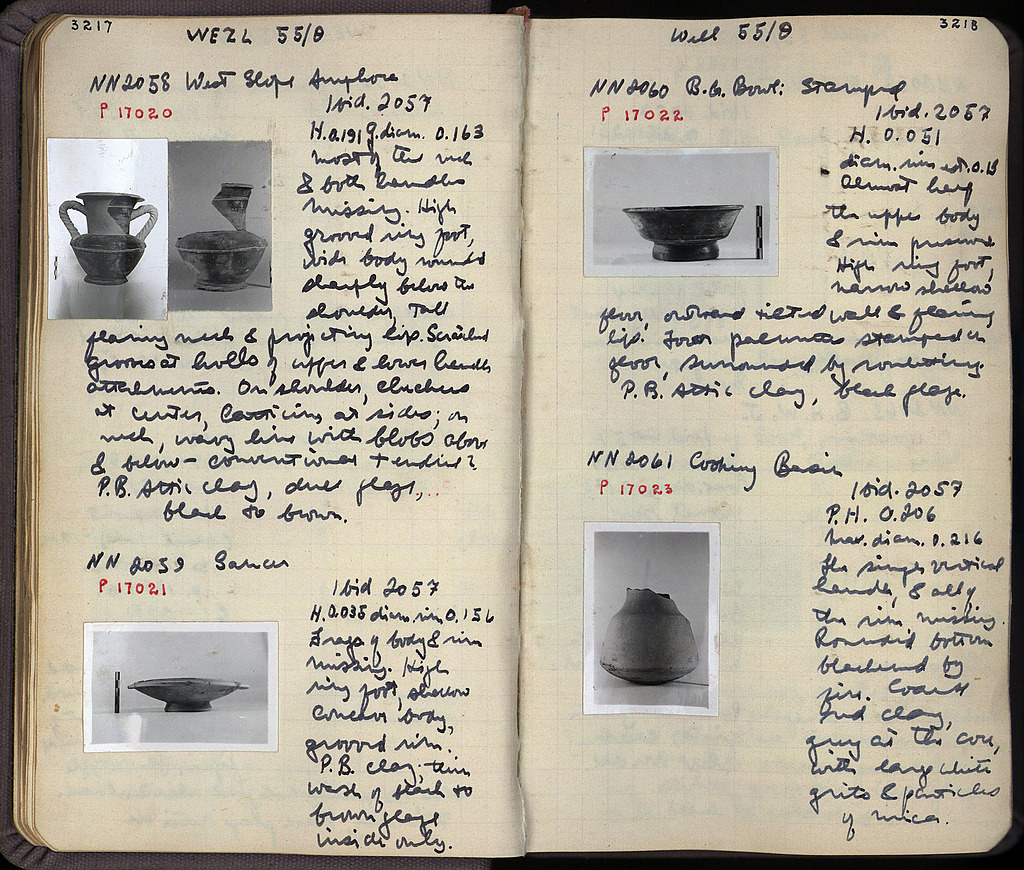 3217
WELL 55/θ
NN2058 West Slope Amphora
P 17020
Ibid. 2057
H. 0.191 g. diam. 0.163
most of the neck
& both handles
missing. High
grooved ring foot,
wide body rounded
sharply below the
shoulder, Tall
flaring neck & projecting lip. Scratched
grooves at hollls of upper & lower handle
attachments. On shoulder, checkers
at center, latticing at sides; on
neck, wavy line with blobs above
& below - conventional tendril?
P.B. Attic clay, dull glaze,
black to brown.
NN 2059 Saucer
P 17021
Ibid 2057
H. 0.038 diam. rim 0.156
Frags of body & rim
missing. High
ring foot, shallow
concave body,
grooved rim.
P.B. clay; thin
wash of black to
brown glaze
inside only.
3218
Well 55/θ
NN2060 B.G. Bowl: Stamped
P 17022
Ibid. 2057
H. 0.051
diam. rim est. 0.13
Almost half
the upper body
& rim preserved.
High ring foot,
narrow shallow
floor, outward tilted wall & flaring
lip. Four palmettes stamped on
floor, surrounded by rouletting.
P.B. Attic clay, black glaze.
NN2061 Cooking Basin
P 17023
Ibid. 2057
P.H. 0.206
Max. diam. 0.216
The single vertical
handle, & all of
the rim missing.
Rounded bottom
blackened by
fire. Coarse
red clay,
grey at the core,
with large white
grits & particles
of mica.